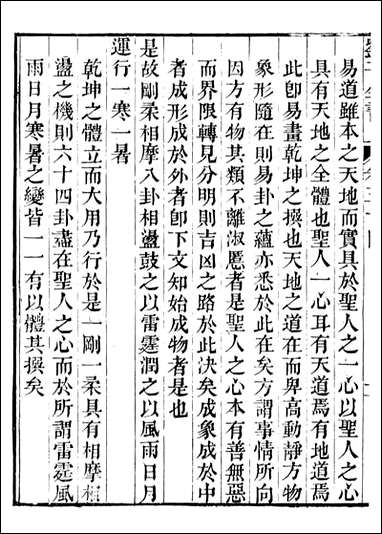 易道雖本之天地而實具於聖人之一心以聖人之心
具有天地之全體也聖人一心耳有天道焉有地道焉
此卽易畫乾坤之撰也天地之道在而卑高動靜方物
象形隨在則易卦之蘊亦悉於此在矣方謂事情所向
因方有物其類不離淑慝者是聖人之心本有善無惡
而界限轉見分明則吉凶之路於此決矣成象成於中
者成形成於外者卽下文知始成物者是也
是故剛柔相摩八卦相盪鼓之以雷霆潤之以風雨日月
運行一寒一暑
乾坤之體立而大用乃行於是一剛一柔具有相摩相
盪之機則六十四卦盡在聖人之心而於所謂雷霆風
雨日月寒暑之變皆一一有以體其撰矣